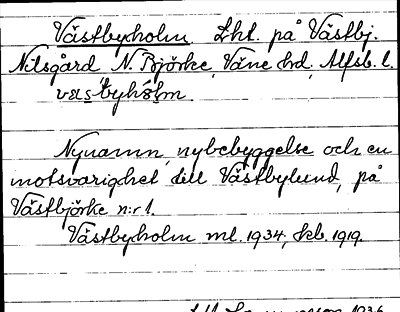 Västbyholm Lht. på Västbj.
Nilsgård N. Björke, Väne hd, Älfsb. l.
västbyhòlm
Nynamn, nybebyggelse och en
motsvarighet till Västbylund, på
Västbjörke n:r 1.
Västbyholm ml. 1934, Jkb. 1919.
1936